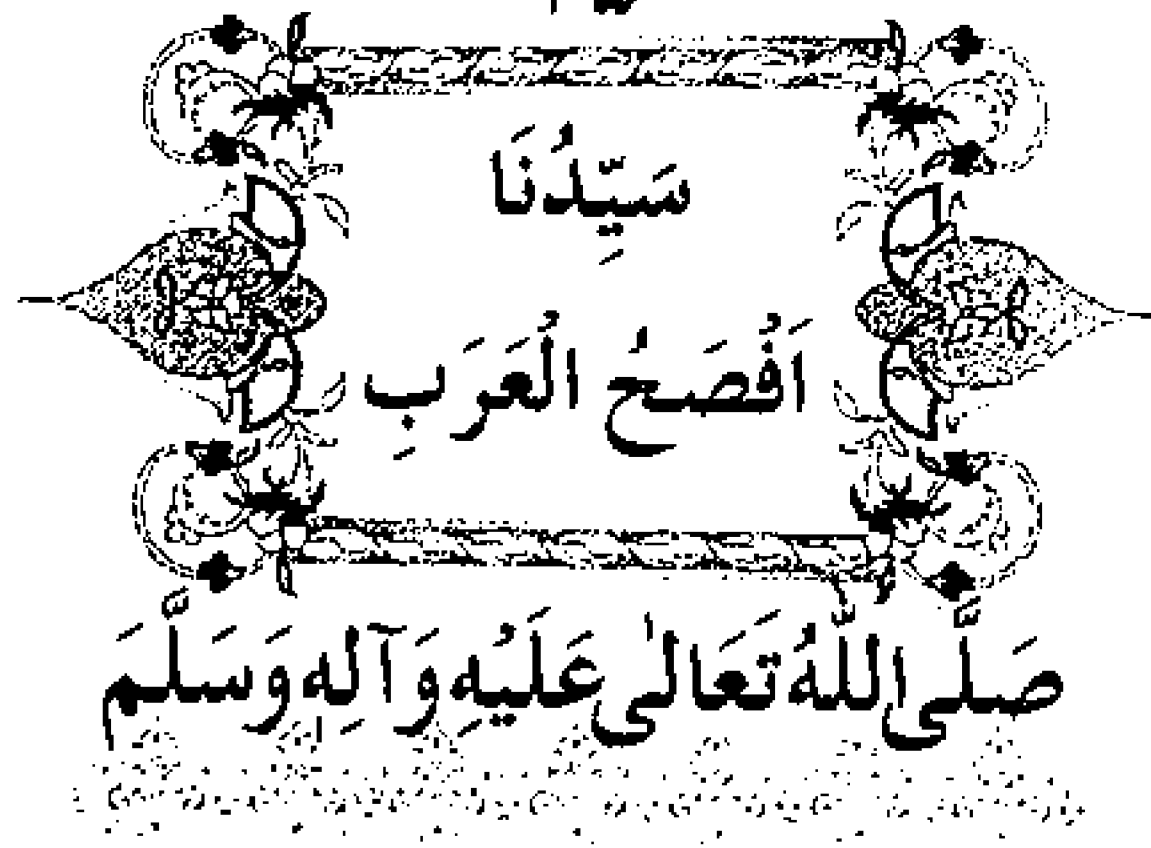 سَيِّدُنَا
اَفْصَحُ الْعَرَبِ
صَلَّی اللّٰهُ تَعَالٰی عَلَيْهِ وَآلِهِ وَسَلَّمَ